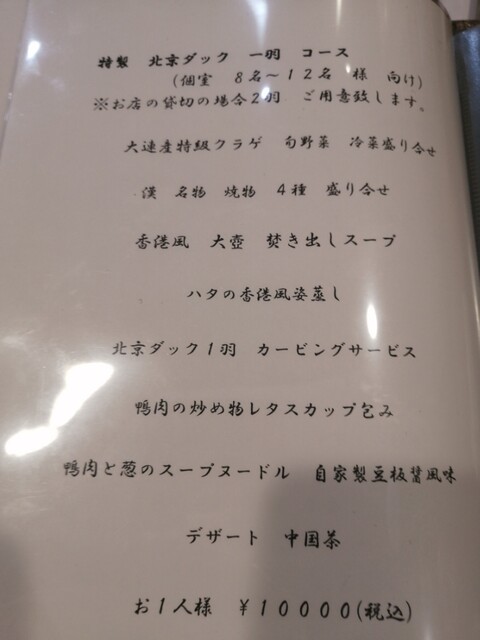 特製　北京ダック　一羽　コース
(個室　８名～１２名　様　向け)
※お店の貸切の場合２羽　ご用意致します。
大連産特級クラゲ　旬野菜　冷菜盛り合せ
漢　名物　焼物　４種　盛り合せ
香港風　大壺　焚き出しスープ
ハタの香港風姿蒸し
北京ダック１羽　カービングサービス
鴨肉の炒め物レタスカップ包み
鴨肉と葱のスープヌードル　自家製豆板醤風味
デザート　中国茶
お１人様　￥１００００(税込)